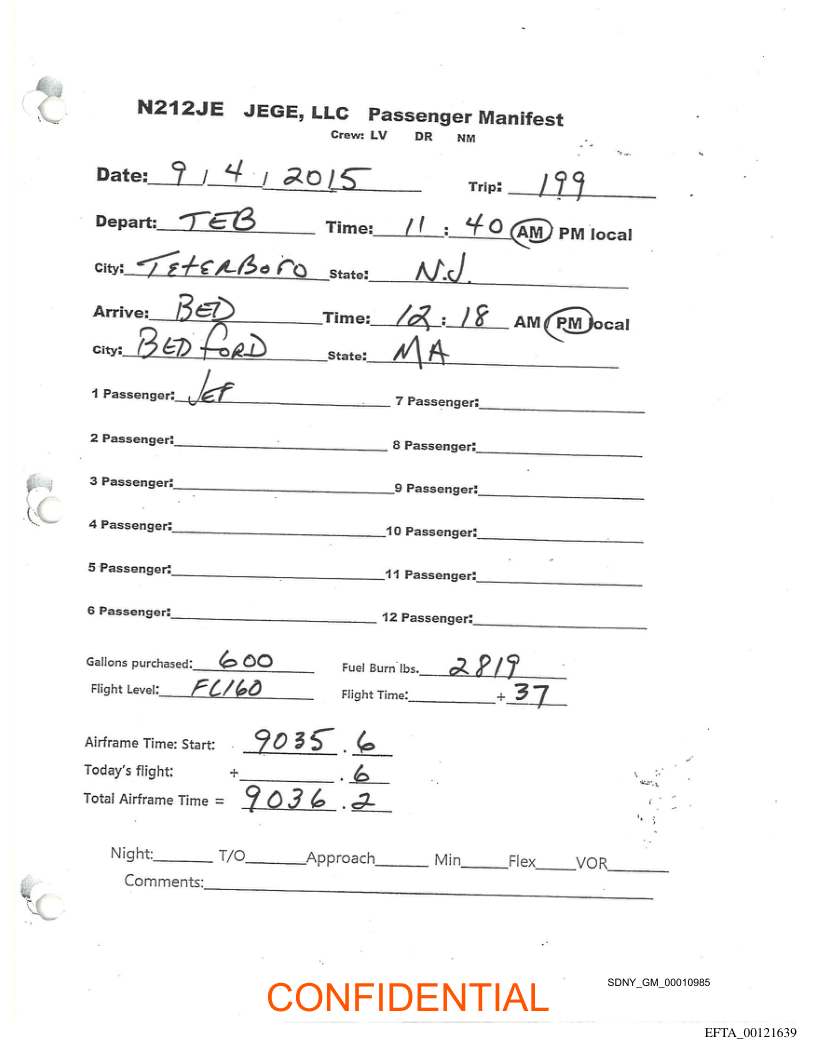 N212JE JEGE, LLC Passenger Manifest
Crew: LV DR NM
Date: 9 / 4 / 2015 Trip: 199
Depart: TEB Time: 11 : 40 AM PM local
City: TETERBORO State: N.J.
Arrive: BED Time: 12 : 18 AM PM local
City: BEDFORD State: MA
1 Passenger: JEF 7 Passenger:
2 Passenger: 8 Passenger:
3 Passenger: 9 Passenger:
4 Passenger: 10 Passenger:
5 Passenger: 11 Passenger:
6 Passenger: 12 Passenger:
Gallons purchased: 600 Fuel Burn lbs. 2819
Flight Level: FL160 Flight Time: + 37
Airframe Time: Start: 9035 . 6
Today's flight: + . 6
Total Airframe Time = 9036 . 2
Night: T/O Approach Min Flex VOR
Comments:
SDNY_GM_00010985
CONFIDENTIAL
EFTA_00121639